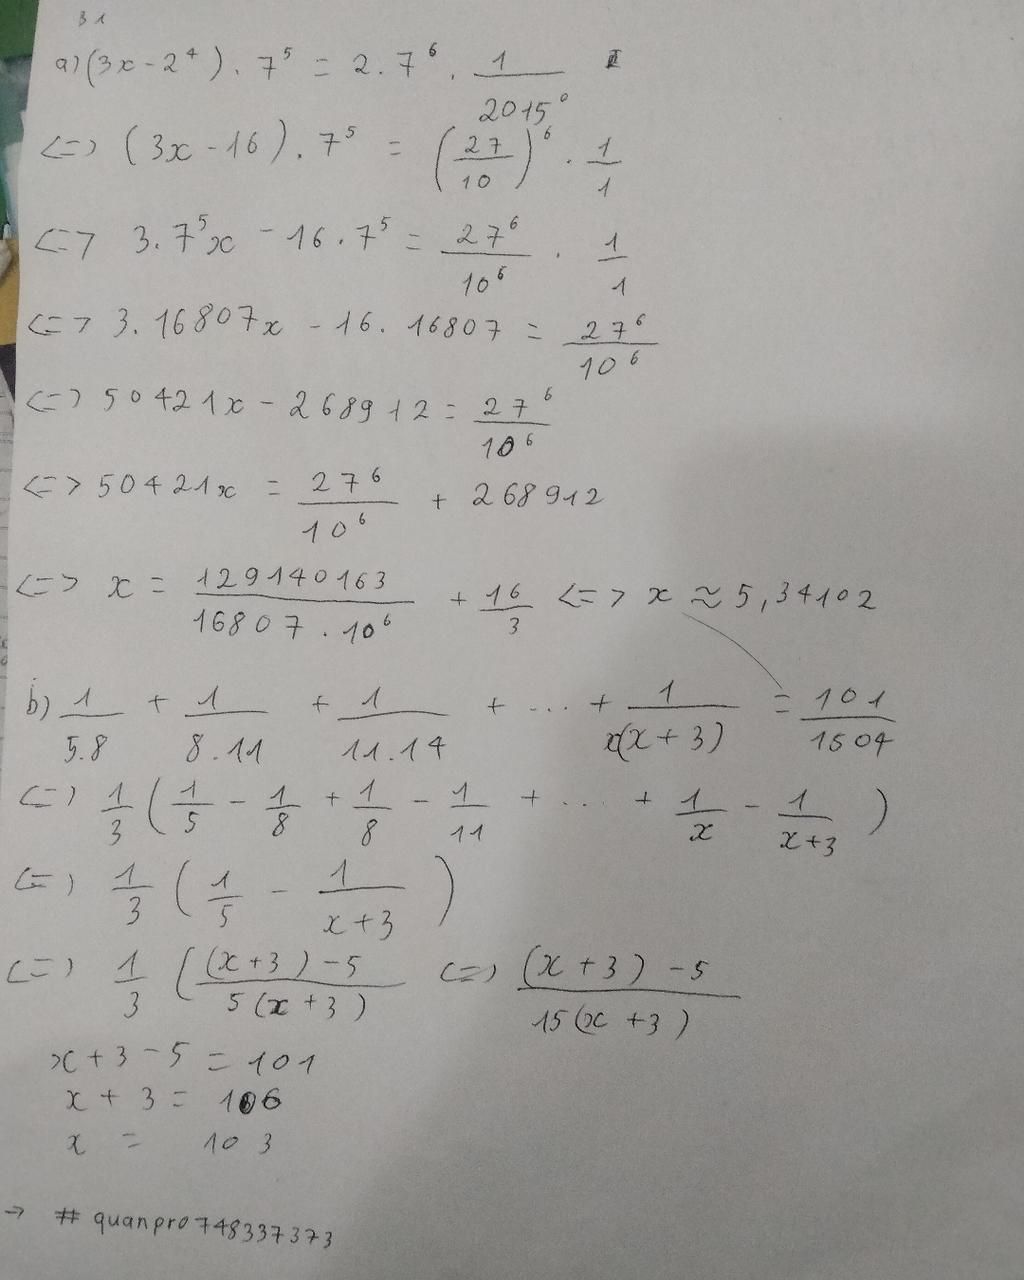 31
a) (3x - 2⁴) . 7⁵ = 2.7⁶ . 1/2015⁰
<=> (3x - 16) . 7⁵ = (27/10)⁶ . 1/1
<=> 3.7⁵x - 16.7⁵ = 27⁶/10⁶ . 1/1
<=> 3.16807x - 16.16807 = 27⁶/10⁶
<=> 50421x - 268912 = 27⁶/10⁶
<=> 50421x = 27⁶/10⁶ + 268912
<=> x = 129140163/16807.10⁶ + 16/3 <=> x ≈ 5,34102
b) 1/5.8 + 1/8.11 + 1/11.14 + ... + 1/x(x+3) = 101/1504
<=> 1/3 (1/5 - 1/8 + 1/8 - 1/11 + ... + 1/x - 1/x+3)
<=> 1/3 (1/5 - 1/x+3)
<=> 1/3 ((x+3)-5/5(x+3) <=> (x+3)-5/15(x+3)
x + 3 - 5 = 101
x + 3 = 106
x = 103
→ # quanpro748337373